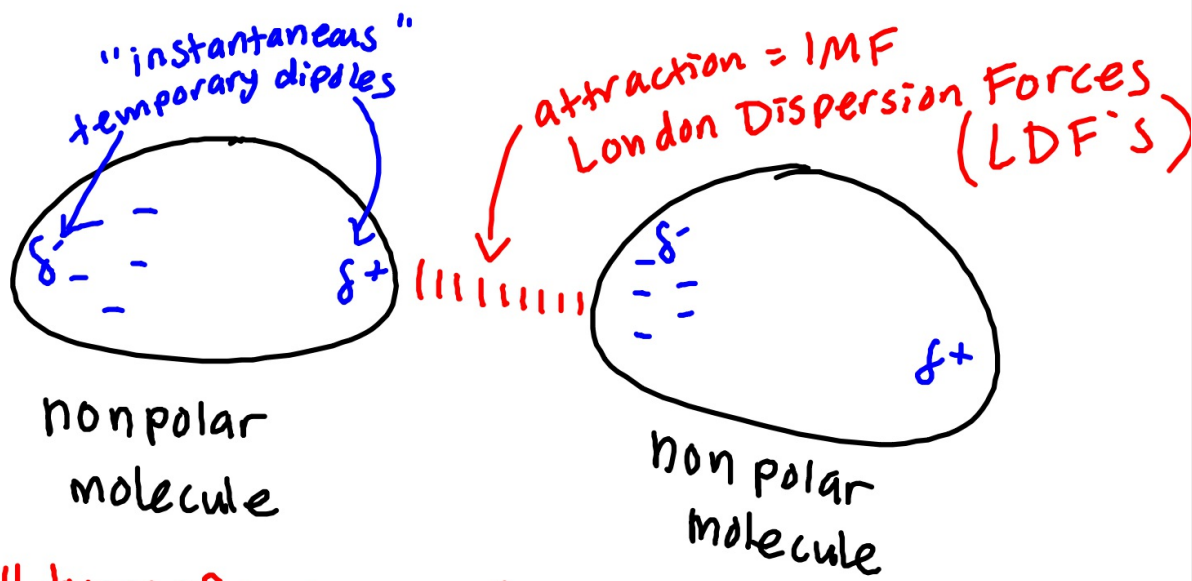 "instantaneous"
temporary dipoles
attraction = IMF
London Dispersion Forces
(LDF's)
δ-
δ+
δ-
δ+
nonpolar
molecule
non polar
molecule